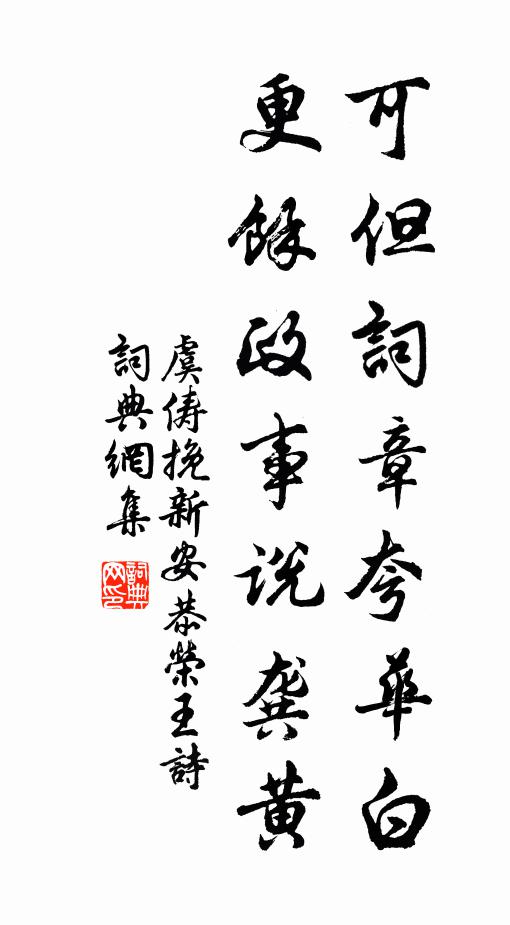 可但詞章夸華白
更餘政事說龔黃
虞儔挽新安恭榮王詩
詞典網集
詞典网印